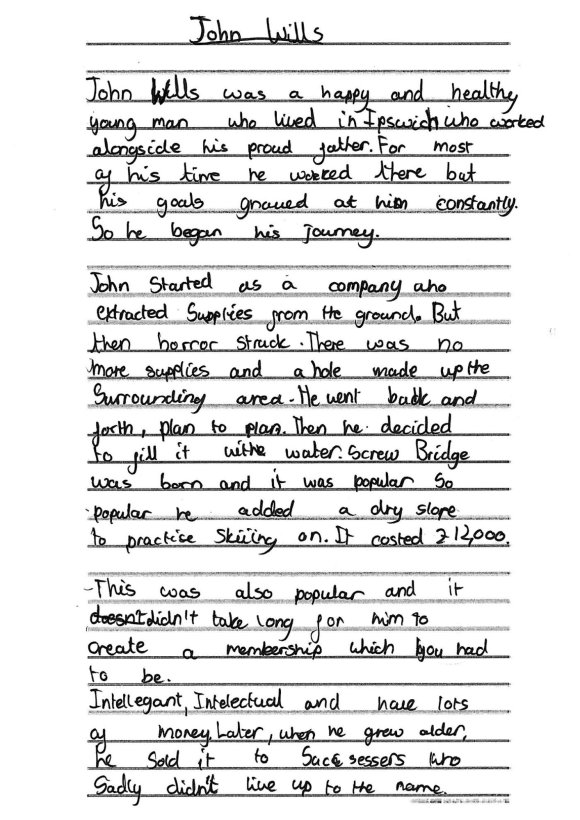 John Wills
John Wills was a happy and healthy
young man who lived in Ipswich who worked
alongside his proud father. For most
of his time he worked there but
his goals gnawed at him constantly.
So he began his journey.
John Started as a company who
extracted Supplies from the ground. But
then horror struck. There was no
more supplies and a hole made up the
Surrounding area. He went back and
forth, plan to plan. Then he decided
to fill it withe water. Screw Bridge
was born and it was popular So
popular he added a dry slope
to practise Skiiing on. It costed £12,000.
This was also popular and it
doesn't didn't take long for him to
create a membership which you had
to be.
Intellegant, Intelectual and have lots
of money. Later, when he grew older,
he Sold it to Sucsessers who
Sadly didn't live up to the name.